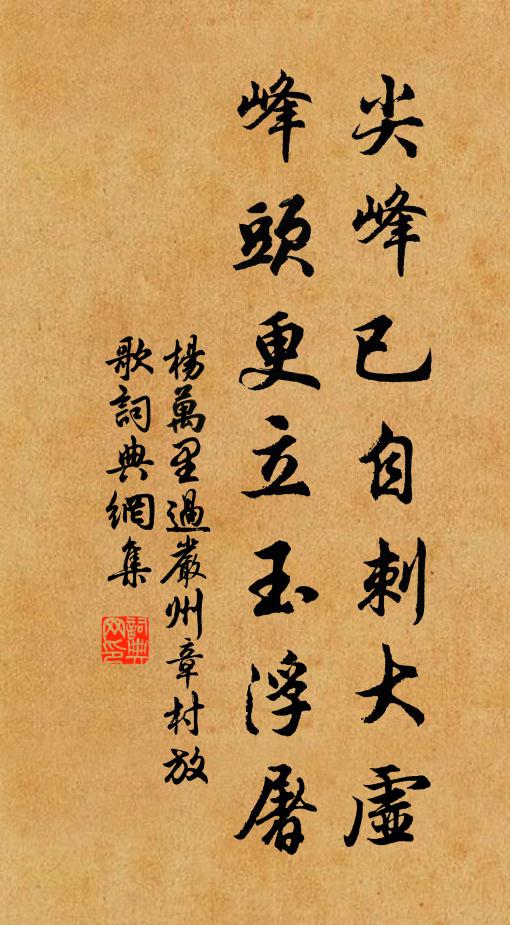 尖峰已自刺大虛
峰頭更立玉浮屠
楊萬里過嚴州章村放
歌詞典網集
詞典
网印